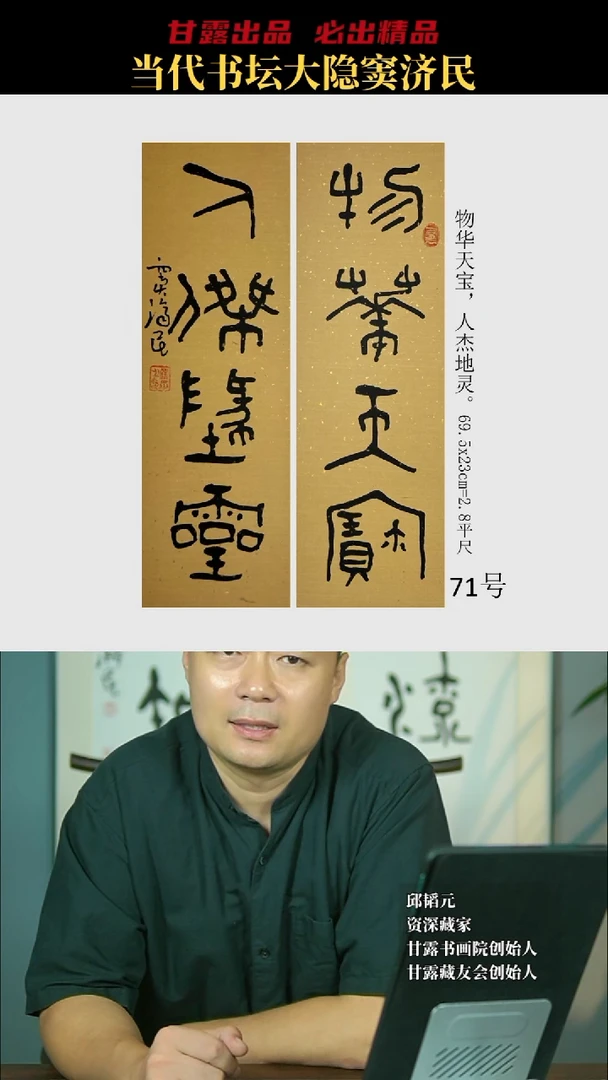 甘露出品 必出精品
当代书坛大隐窦济民
物華天寶
人傑墬靈
窦济民
物华天宝，人杰地灵。69.5x23cm=2.8平尺
71号
邱韬元
资深藏家
甘露书画院创始人
甘露藏友会创始人